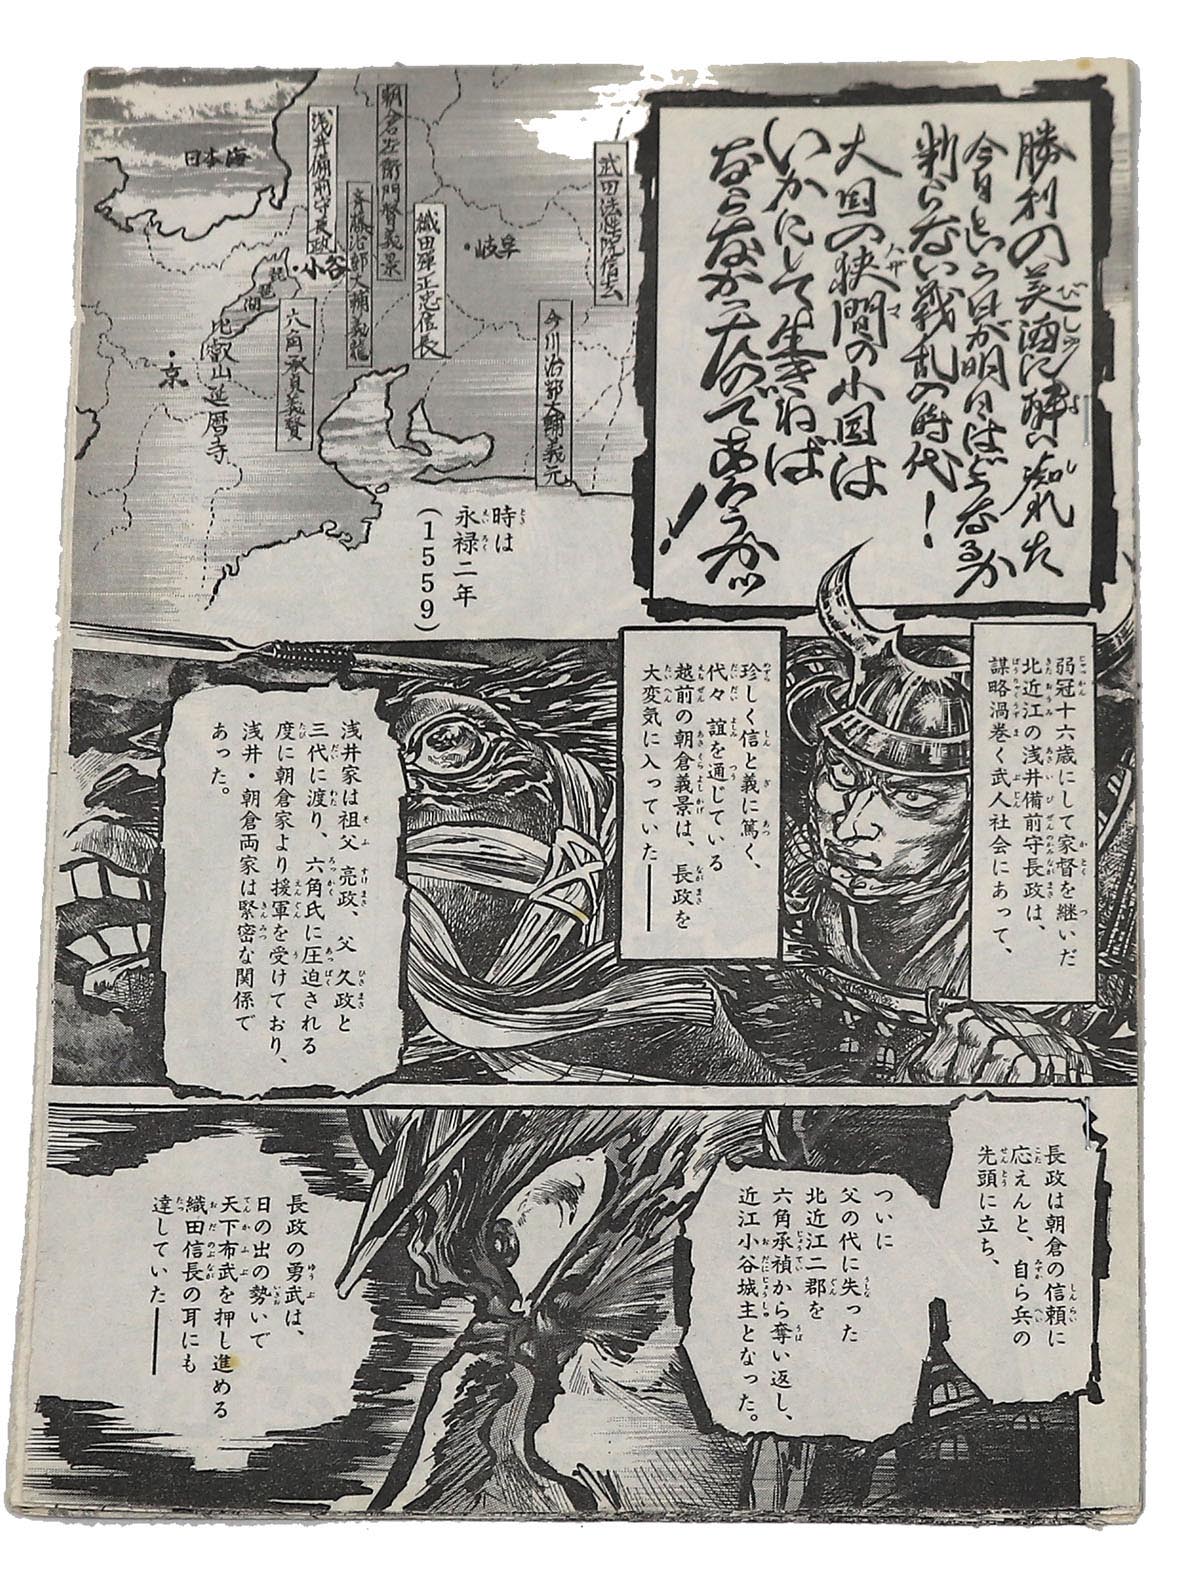 勝利の美酒に酔い痴れた
今日という日が明日はどうなるか
判らない戦乱の時代!
大国の狭間の小国は
いかにして生きねば
ならなかったのであろうか!!
武田法性院信玄
今川治部大輔義元
岐阜
織田弾正忠信長
朝倉左衛門督義景
斉藤治部大輔義龍
浅井備前守長政
小谷
六角承貞義賢
琵琶湖
比叡山延暦寺
日本海
京
時は
永禄二年
(1559)
弱冠十六歳にして家督を継いだ
北近江の浅井備前守長政は、
謀略渦巻く武人社会にあって、
珍しく信と義に篤く、
代々 誼を通じている
越前の朝倉義景は、長政を
大変気に入っていた――
浅井家は祖父 亮政、父 久政と
三代に渡り、六角氏に圧迫される
度に朝倉家より援軍を受けており、
浅井・朝倉両家は緊密な関係で
あった。
長政は朝倉の信頼に
応えんと、自ら兵の
先頭に立ち、
ついに
父の代に失った
北近江二郡を
六角承禎から奪い返し、
近江小谷城主となった。
長政の勇武は、
日の出の勢いで
天下布武を押し進める
織田信長の耳にも
達していた――